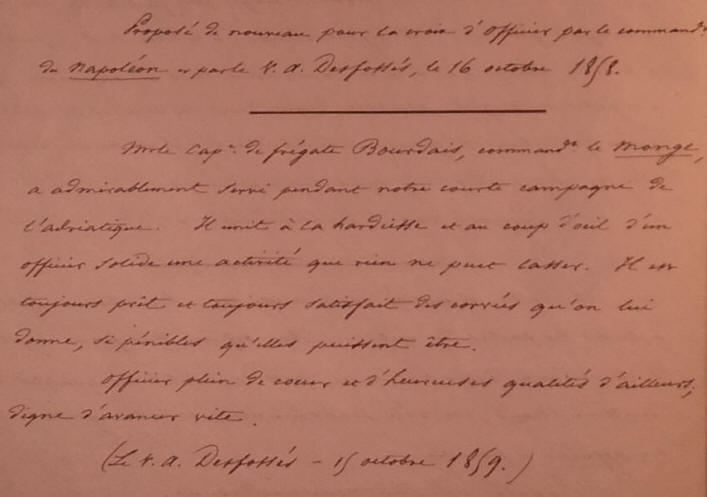 Proposé de nouveau pour la croix d'officier par le command.t
du Napoléon et par le V. A. Desfossés, le 16 octobre 1858.
Mr le Cap.ne de frégate Bourdais, command.t le Monge,
a admirablement servi pendant notre courte campagne de
l'adriatique. Il unit à la hardiesse et au coup d'oeil d'un
officier solide une activité que rien ne peut lasser. Il est
toujours prêt et toujours satisfait des corvées qu'on lui
donne, si pénibles qu'elles puissent être.
officier plein de coeur et d'heureuses qualités d'ailleurs;
digne d'avancer vite.
(Le V. A. Desfossés - 15 octobre 1859.)